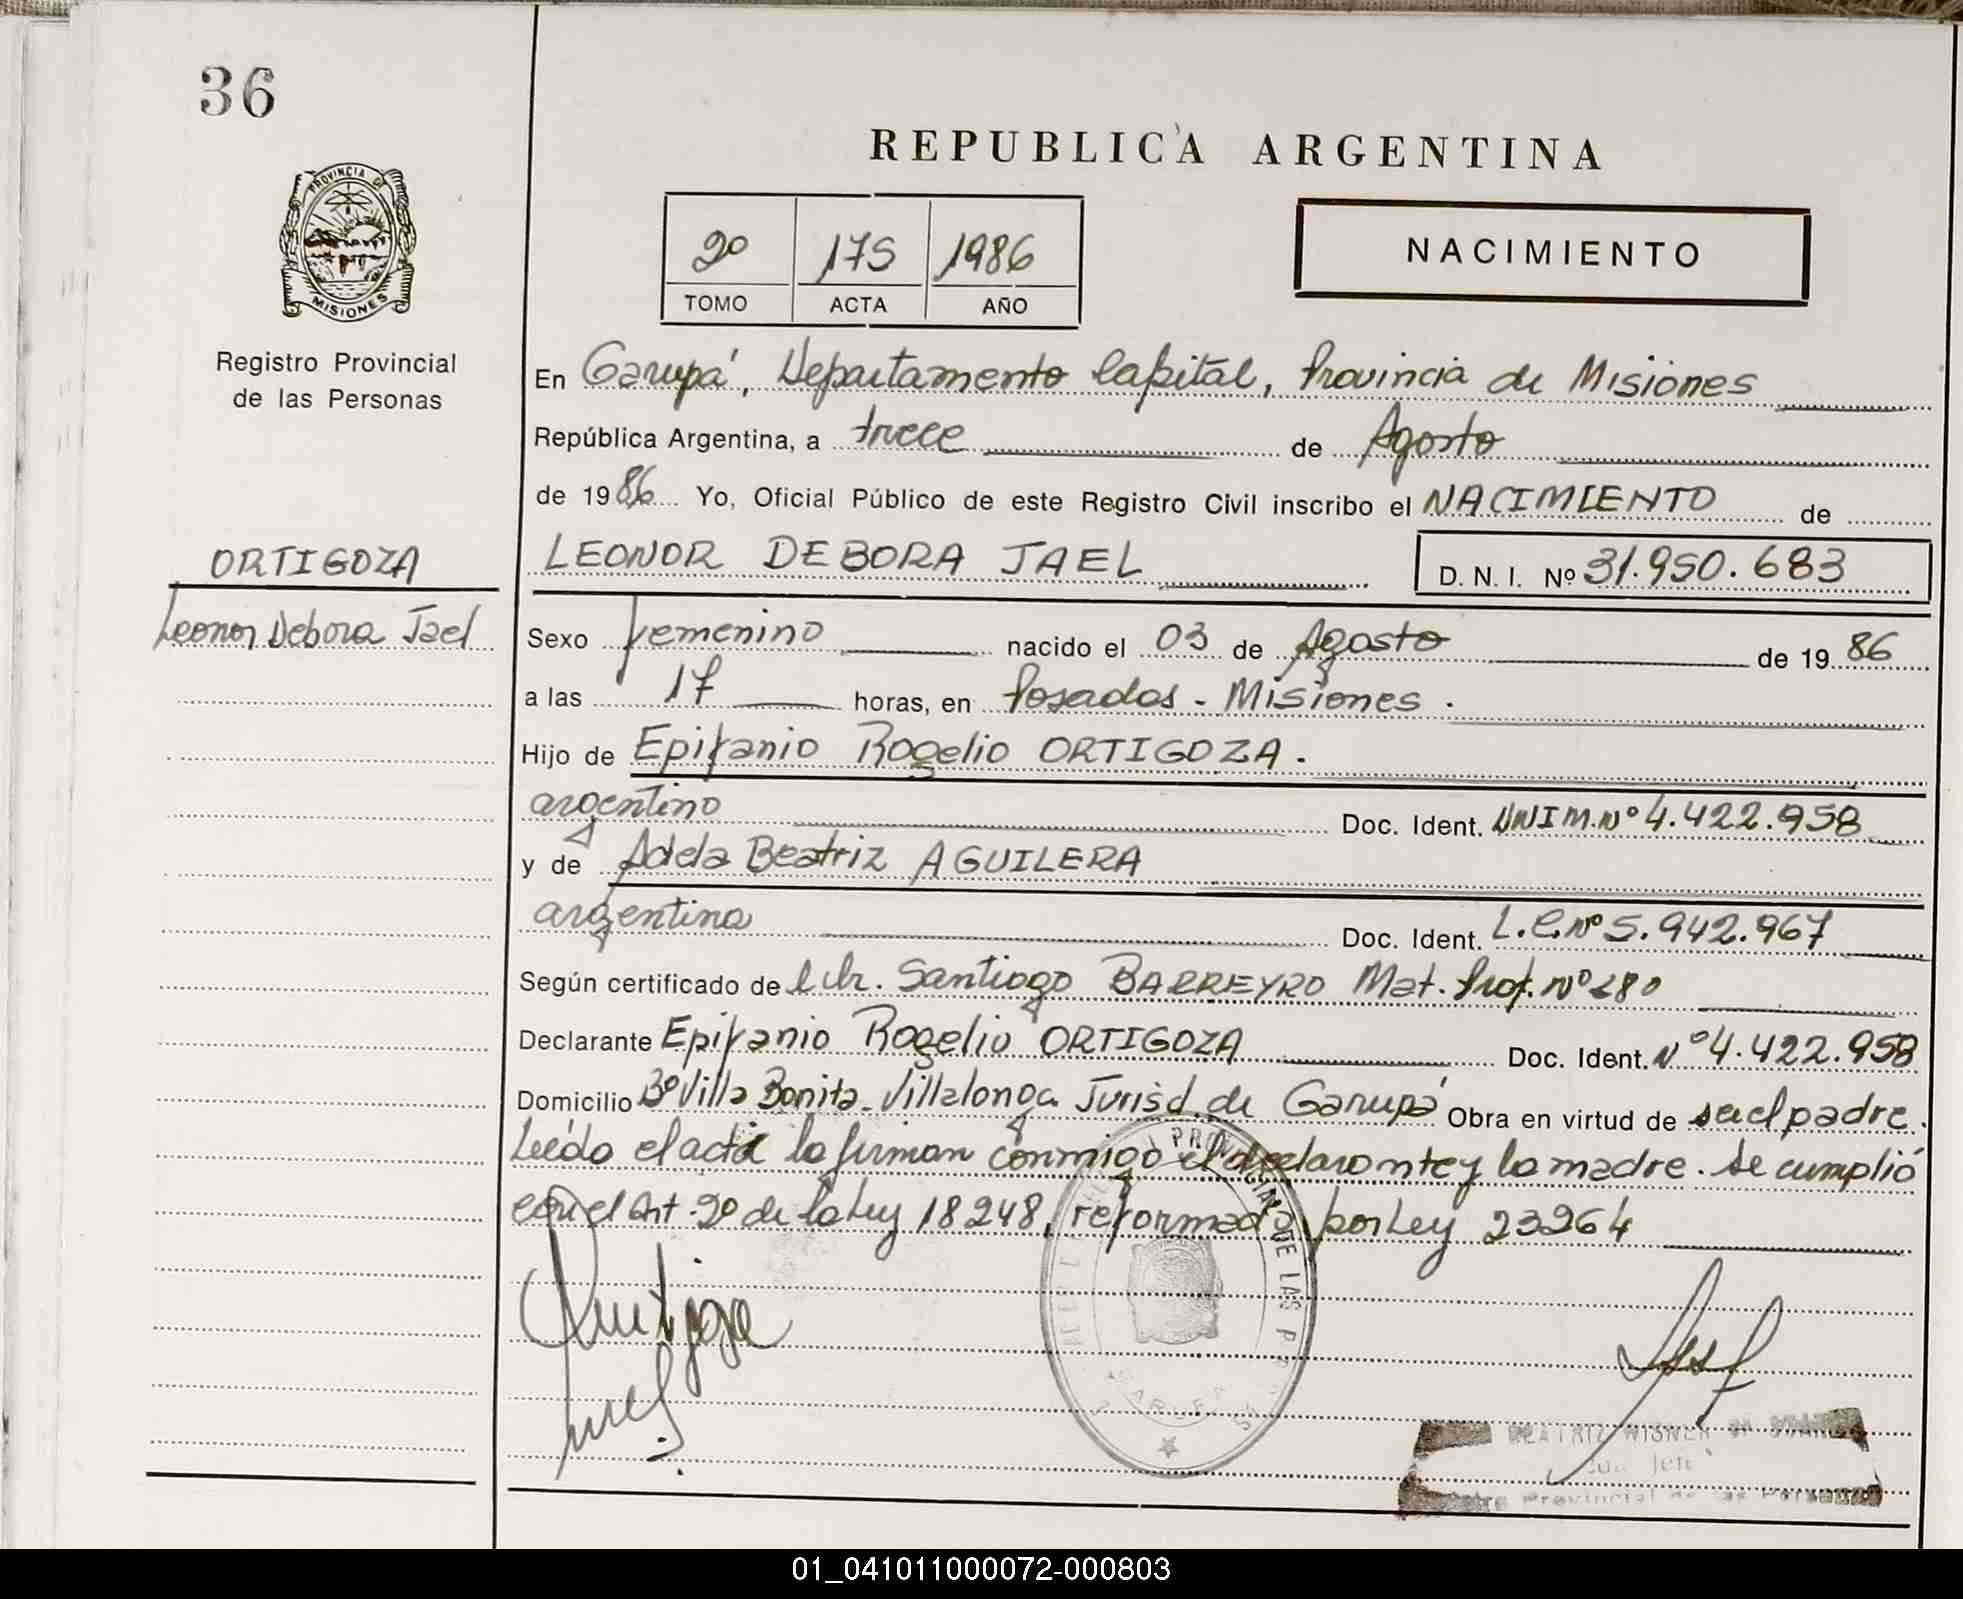 36
REPUBLICA ARGENTINA
PROVINCIA DE
MISIONES
Registro Provincial
de las Personas
2º 175 1986
TOMO ACTA AÑO
NACIMIENTO
En Garupá, Departamento Capital, Provincia de Misiones
República Argentina, a trece de Agosto
de 1986 Yo, Oficial Público de este Registro Civil inscribo el NACIMIENTO de
ORTIGOZA
Leonor Debora Jael
LEONOR DEBORA JAEL D. N. I. Nº 31.950.683
Sexo femenino nacido el 03 de Agosto de 1986
a las 17 horas, en Posadas - Misiones.
Hijo de Epifanio Rogelio ORTIGOZA.
argentino Doc. Ident. DNIM.Nº 4.422.958
y de Adela Beatriz AGUILERA
argentina Doc. Ident. L.C.Nº 5.942.967
Según certificado de Dr. Santiago BARREYRO Mat. Prof. Nº 280
Declarante Epifanio Rogelio ORTIGOZA Doc. Ident. Nº 4.422.958
Domicilio Bº Villa Bonita - Villalonga Jurisd. de Garupá Obra en virtud de ser el padre.
Leído el acta la firman conmigo el declarante y la madre. Se cumplió
con el Art. 2º de la Ley 18248, reformada por Ley 23264
BEATRIZ WISNER DE
Registro Provincial de las Personas
01_041011000072-000803